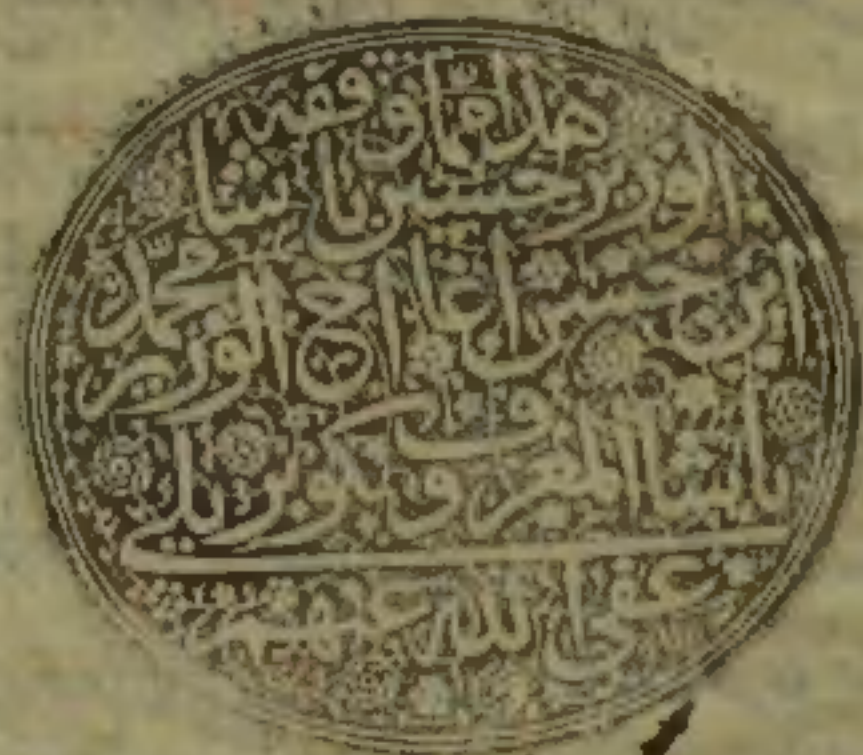 هذا ممّا وقفه
الوزير حسين باشا
ابن حسن اغا اخ الوزير محمّد
باشا المعروف بكوبريلي
عفى الله عنهم